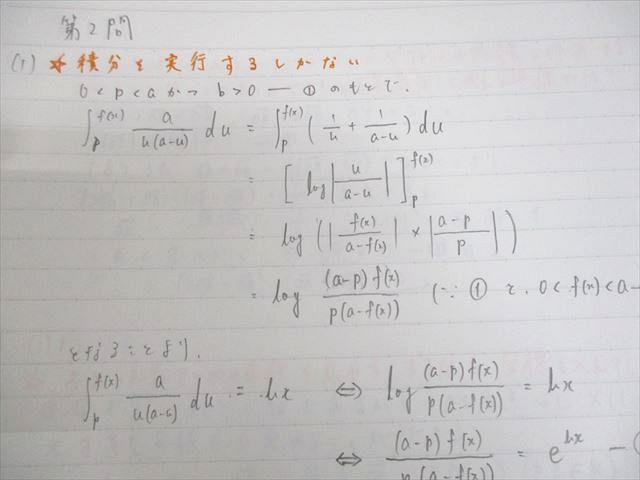 第2問
(1) ☆積分を実行するしかない
0 < p < a かつ b > 0 — ① のもとで.
∫_p^{f(x)} a/(u(a-u)) du = ∫_p^{f(x)} (1/u + 1/(a-u)) du
= [log|u/(a-u)|]_p^{f(x)}
= log(|f(x)/(a-f(x))| × |(a-p)/p|)
= log (a-p)f(x)/(p(a-f(x))) (∵ ① と. 0 < f(x) < a
となることより.
∫_p^{f(x)} a/(u(a-u)) du = bx ⇔ log (a-p)f(x)/(p(a-f(x))) = bx
⇔ (a-p)f(x)/(p(a-f(x))) = e^{bx} —